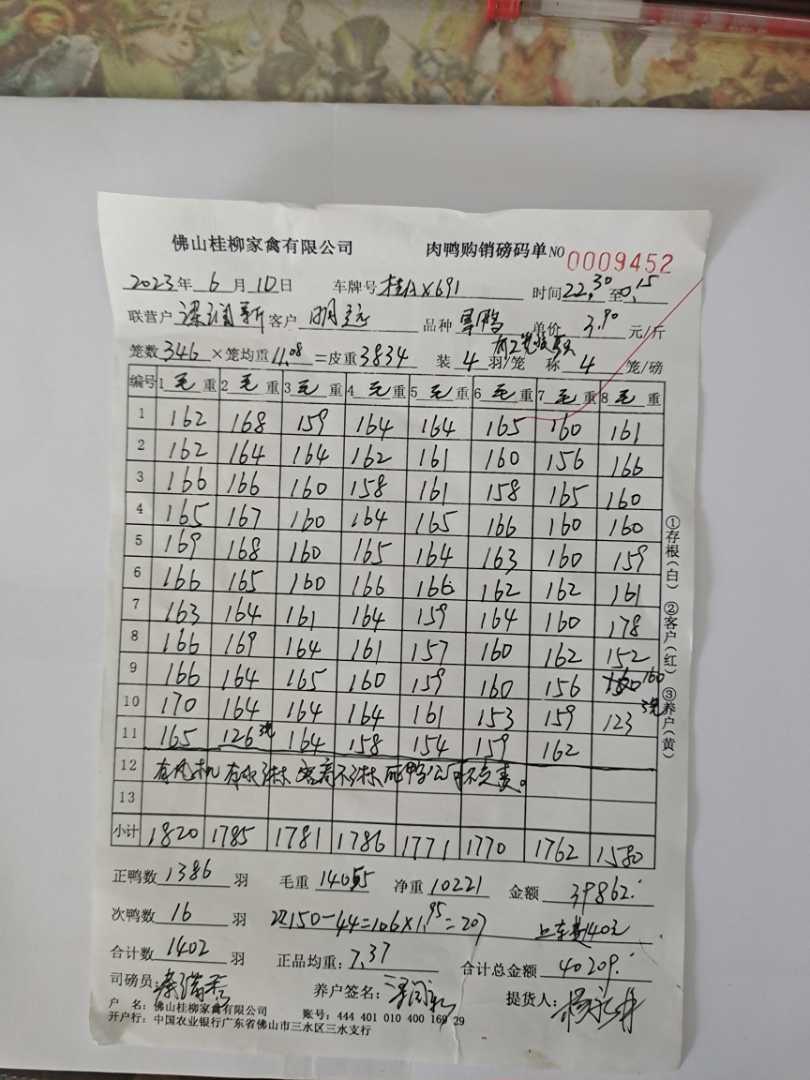 佛山桂柳家禽有限公司 肉鸭购销磅码单 NO 0009452
2023年 6 月 10 日 车牌号 桂AX691 时间 22:30 至 0:15
联营户 客户 明 品种 鸭 单价 3.90 元/斤
笼数 346 ×笼均重 11.08 =皮重 3834 装 4 羽/笼 称 4 笼/磅
编号 1 毛 重 2 毛 重 3 毛 重 4 毛 重 5 毛 重 6 毛 重 7 毛 重 8 毛 重
1 162 168 159 164 164 165 160 161
2 162 164 164 162 161 160 156 166
3 166 166 160 158 161 158 165 160
4 165 167 160 164 165 166 160 160
5 169 168 160 165 164 163 160 159
6 166 165 160 166 166 162 162 161
7 163 164 161 164 159 164 160 178
8 166 169 164 161 157 160 162 152
9 166 164 165 160 159 160 156 160
10 170 164 164 164 161 153 159 123
11 165 126 164 158 154 159 162
12 有风机 有水淋 不淋 死鸭公司不负责。
13
小计 1820 1785 1781 1786 1771 1770 1762 1580
正鸭数 1386 羽 毛重 14055 净重 10221 金额 39862.
次鸭数 16 羽 150-44=106×1.95=207 上车费1402
合计数 1402 羽 正品均重: 7.37 合计总金额 40209.
司磅员: 养户签名: 提货人:
户 名: 佛山桂柳家禽有限公司 账号: 444 401 010 400 169 29
开户行: 中国农业银行广东省佛山市三水区三水支行
①存根(白) ②客户(红) ③养户(黄)